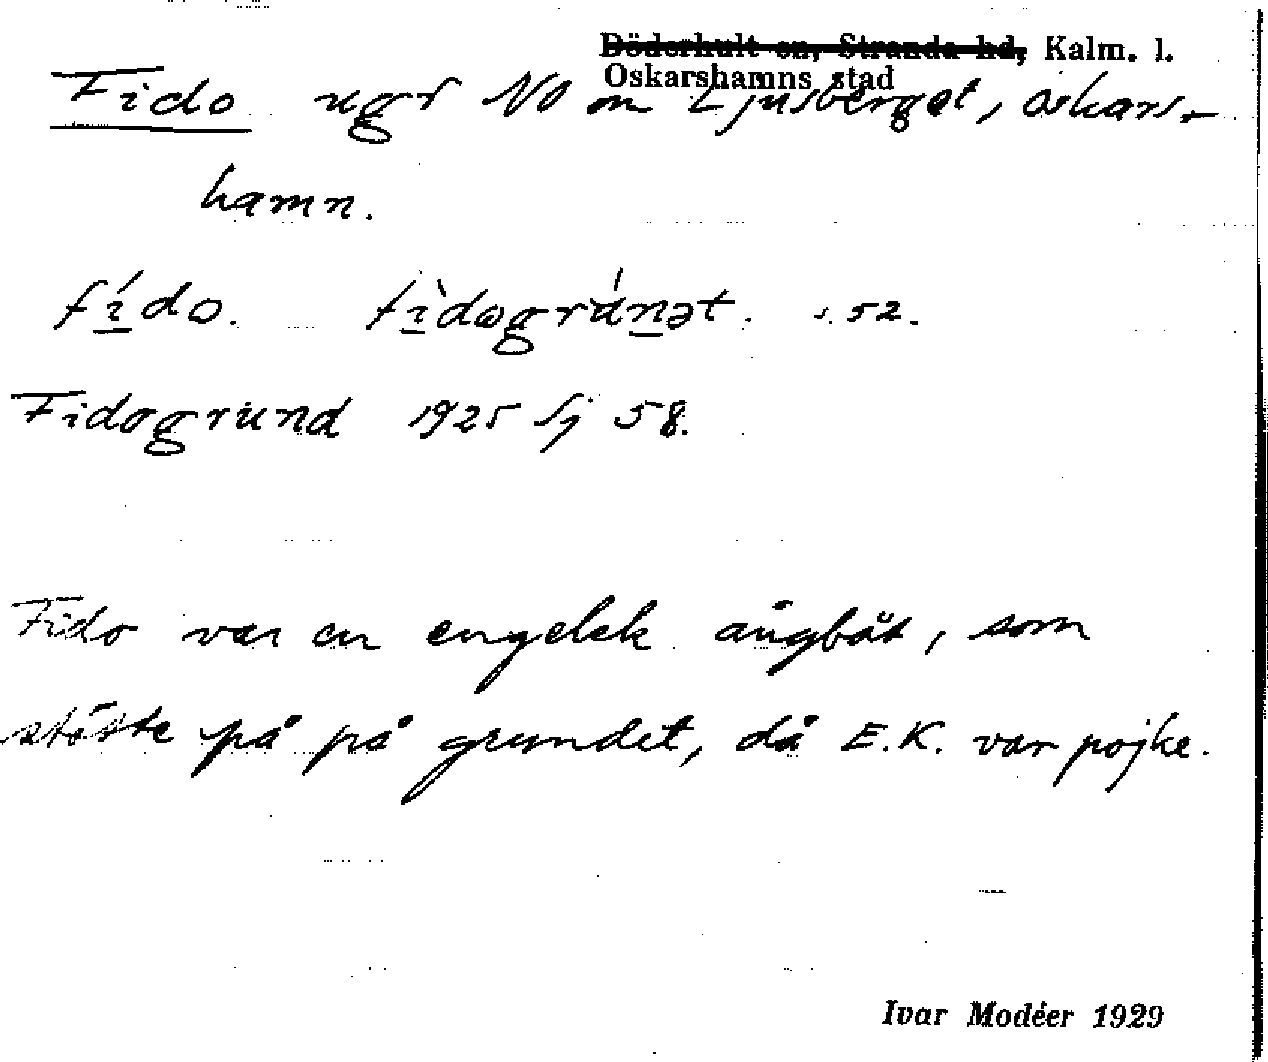 Döderhult sn, Stranda hd, Kalm. l.
Oskarshamns stad
Fido ugr NO om Ljusberget, Oskars-
hamn.
fí̱do. fì̱dogrúṉət. s. 52.
Fidogrund 1925 Sj 58.
Fido var en engelsk ångbåt, som
stötte på på grundet, då E.K. var pojke.
Ivar Modéer 1929